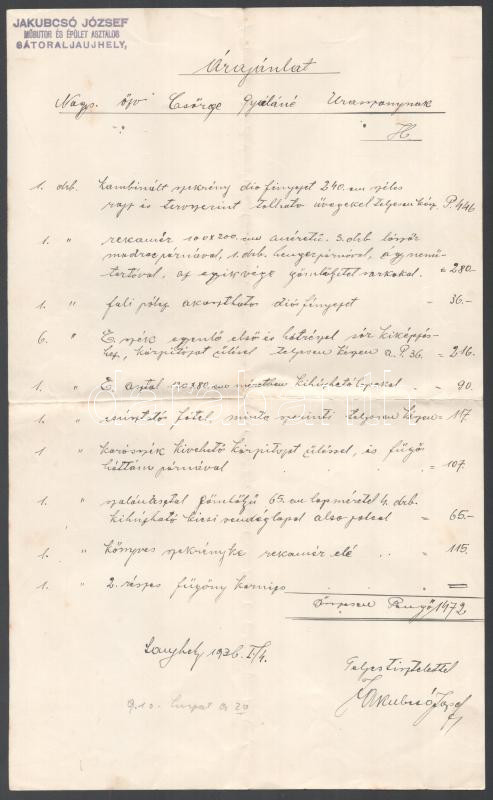 JAKUBCSÓ JÓZSEF
MŰBUTOR ÉS ÉPÜLET ASZTALOS
SÁTORALJAUJHELY,
Árajánlat
Nags. özv Csörge Gyuláné Urasszonynak
H.
1. drb. kombinált szekrény dió fényezet 240. cm széles
rajz és tervszerint tolható üvegekel teljesen kész P. 446
1. " rekamér 100x200. cm méretű. 3. drb lószőr
madrac párnával, 1. drb. hengerpárnával, ágynemű-
tartóval, az egyik vége gömbölyítet sarkokal. = 280-
1. " fali polc akasztható diófényezet - 36.-
6. " szék egyenlő első és hátrésszel
kárpitozot üléssel teljesen készen a. P. 36. = 216.
1. " asztal 120x80. cm méretben kihúzható lapokal. - 90.
1. " fotel, minta szerinti teljesen készen = 117.
1 " karosszék kivehető kárpitozot üléssel, és függő
háttám párnával = 107.
1. " szalónasztal gömbölyű 65. cm lapméretel 4. drb.
kihúzható kicsi vendéglapal alsó polcal = 65.-
1. " könyves szekrényke rekamér elé = 115.
1. " 2. részes függöny karnis =
Összesen Pengő 1472
Sauhely 1936. I/4.
Teljes tisztelettel
Jakubcsó József